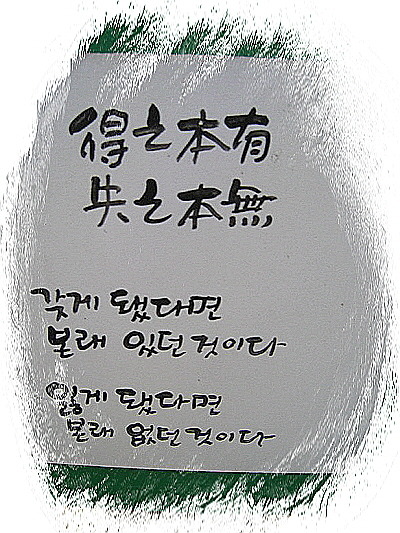 得之本有
失之本無
갖게 됐다면
본래 있던 것이다
잃게 됐다면
본래 없던 것이다